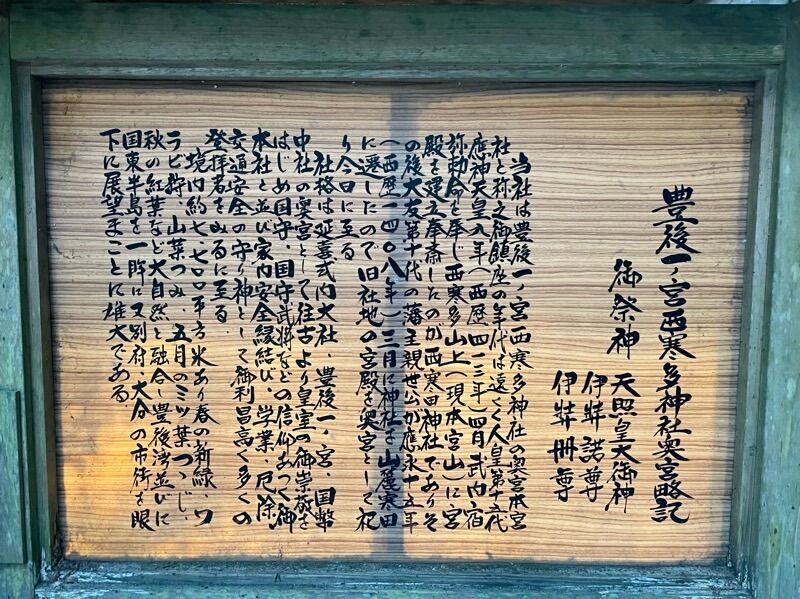 豊後一ノ宮西寒多神社奥宮略記
御祭神 天照皇大御神
伊弉諾尊
伊弉冊尊
当社は豊後一ノ宮西寒多神社の奥宮本宮
社と称え御鎮座の年代は遠く人皇第十五代
應神天皇八年(西歴四一三年)四月武内宿
祢勅命を奉じ西寒多山上(現本宮山)に宮
殿を建立奉斎したのが西寒田神社でありそ
の後大友第十代の藩主親世公が應永十五年
(西歴一四〇八年)三月に神社を山麓寒田
に遷したので旧社地の宮殿を奥宮として祀
り今日に至る
社格は延喜式内大社、豊後一ノ宮、国幣
中社の奥宮として往古より皇室の御崇敬を
はじめ国守、国守武将などの信仰あつく御
本社と並び家内安全縁結び、学業、厄除、
交通安全の守り神として御利昌高く多くの
登拝者をみるに至る。
境内約七、七〇〇平方米あり春の新緑、ワ
ラビ狩、山葉つみ、五月のミツ葉つつじ、
秋の紅葉など大自然と融合し豊後湾並びに
国東半島を一眸に又別府、大分の市街を眼
下に展望まことに雄大である